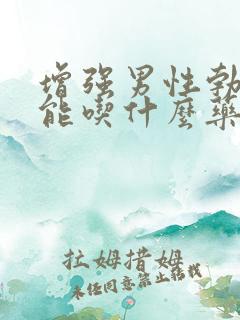 增强男性勃
能喫什麼藥
拉姆措姆
未经同意禁止转载